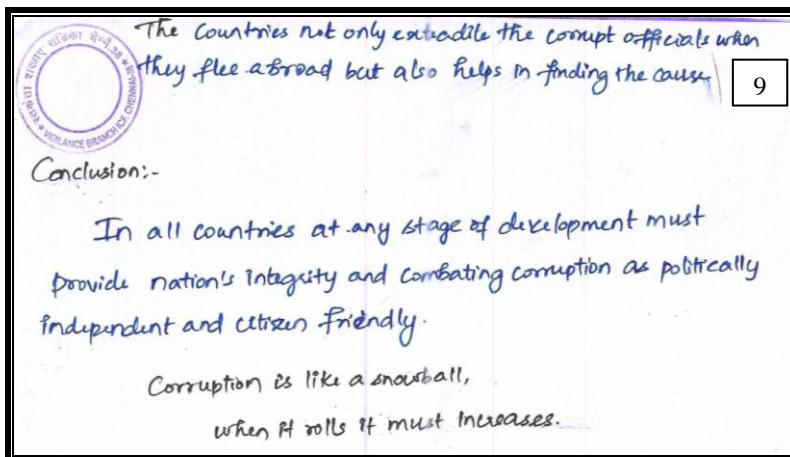 The Countries not only extradite the corrupt officials when
they flee abroad but also helps in finding the cause
9
VIGILANCE BRANCH ICF, CHENNAI
Conclusion:-
In all countries at any stage of development must
provide nation's integrity and combating corruption as politically
independent and citizen friendly.
Corruption is like a snowball,
when it rolls it must increases.